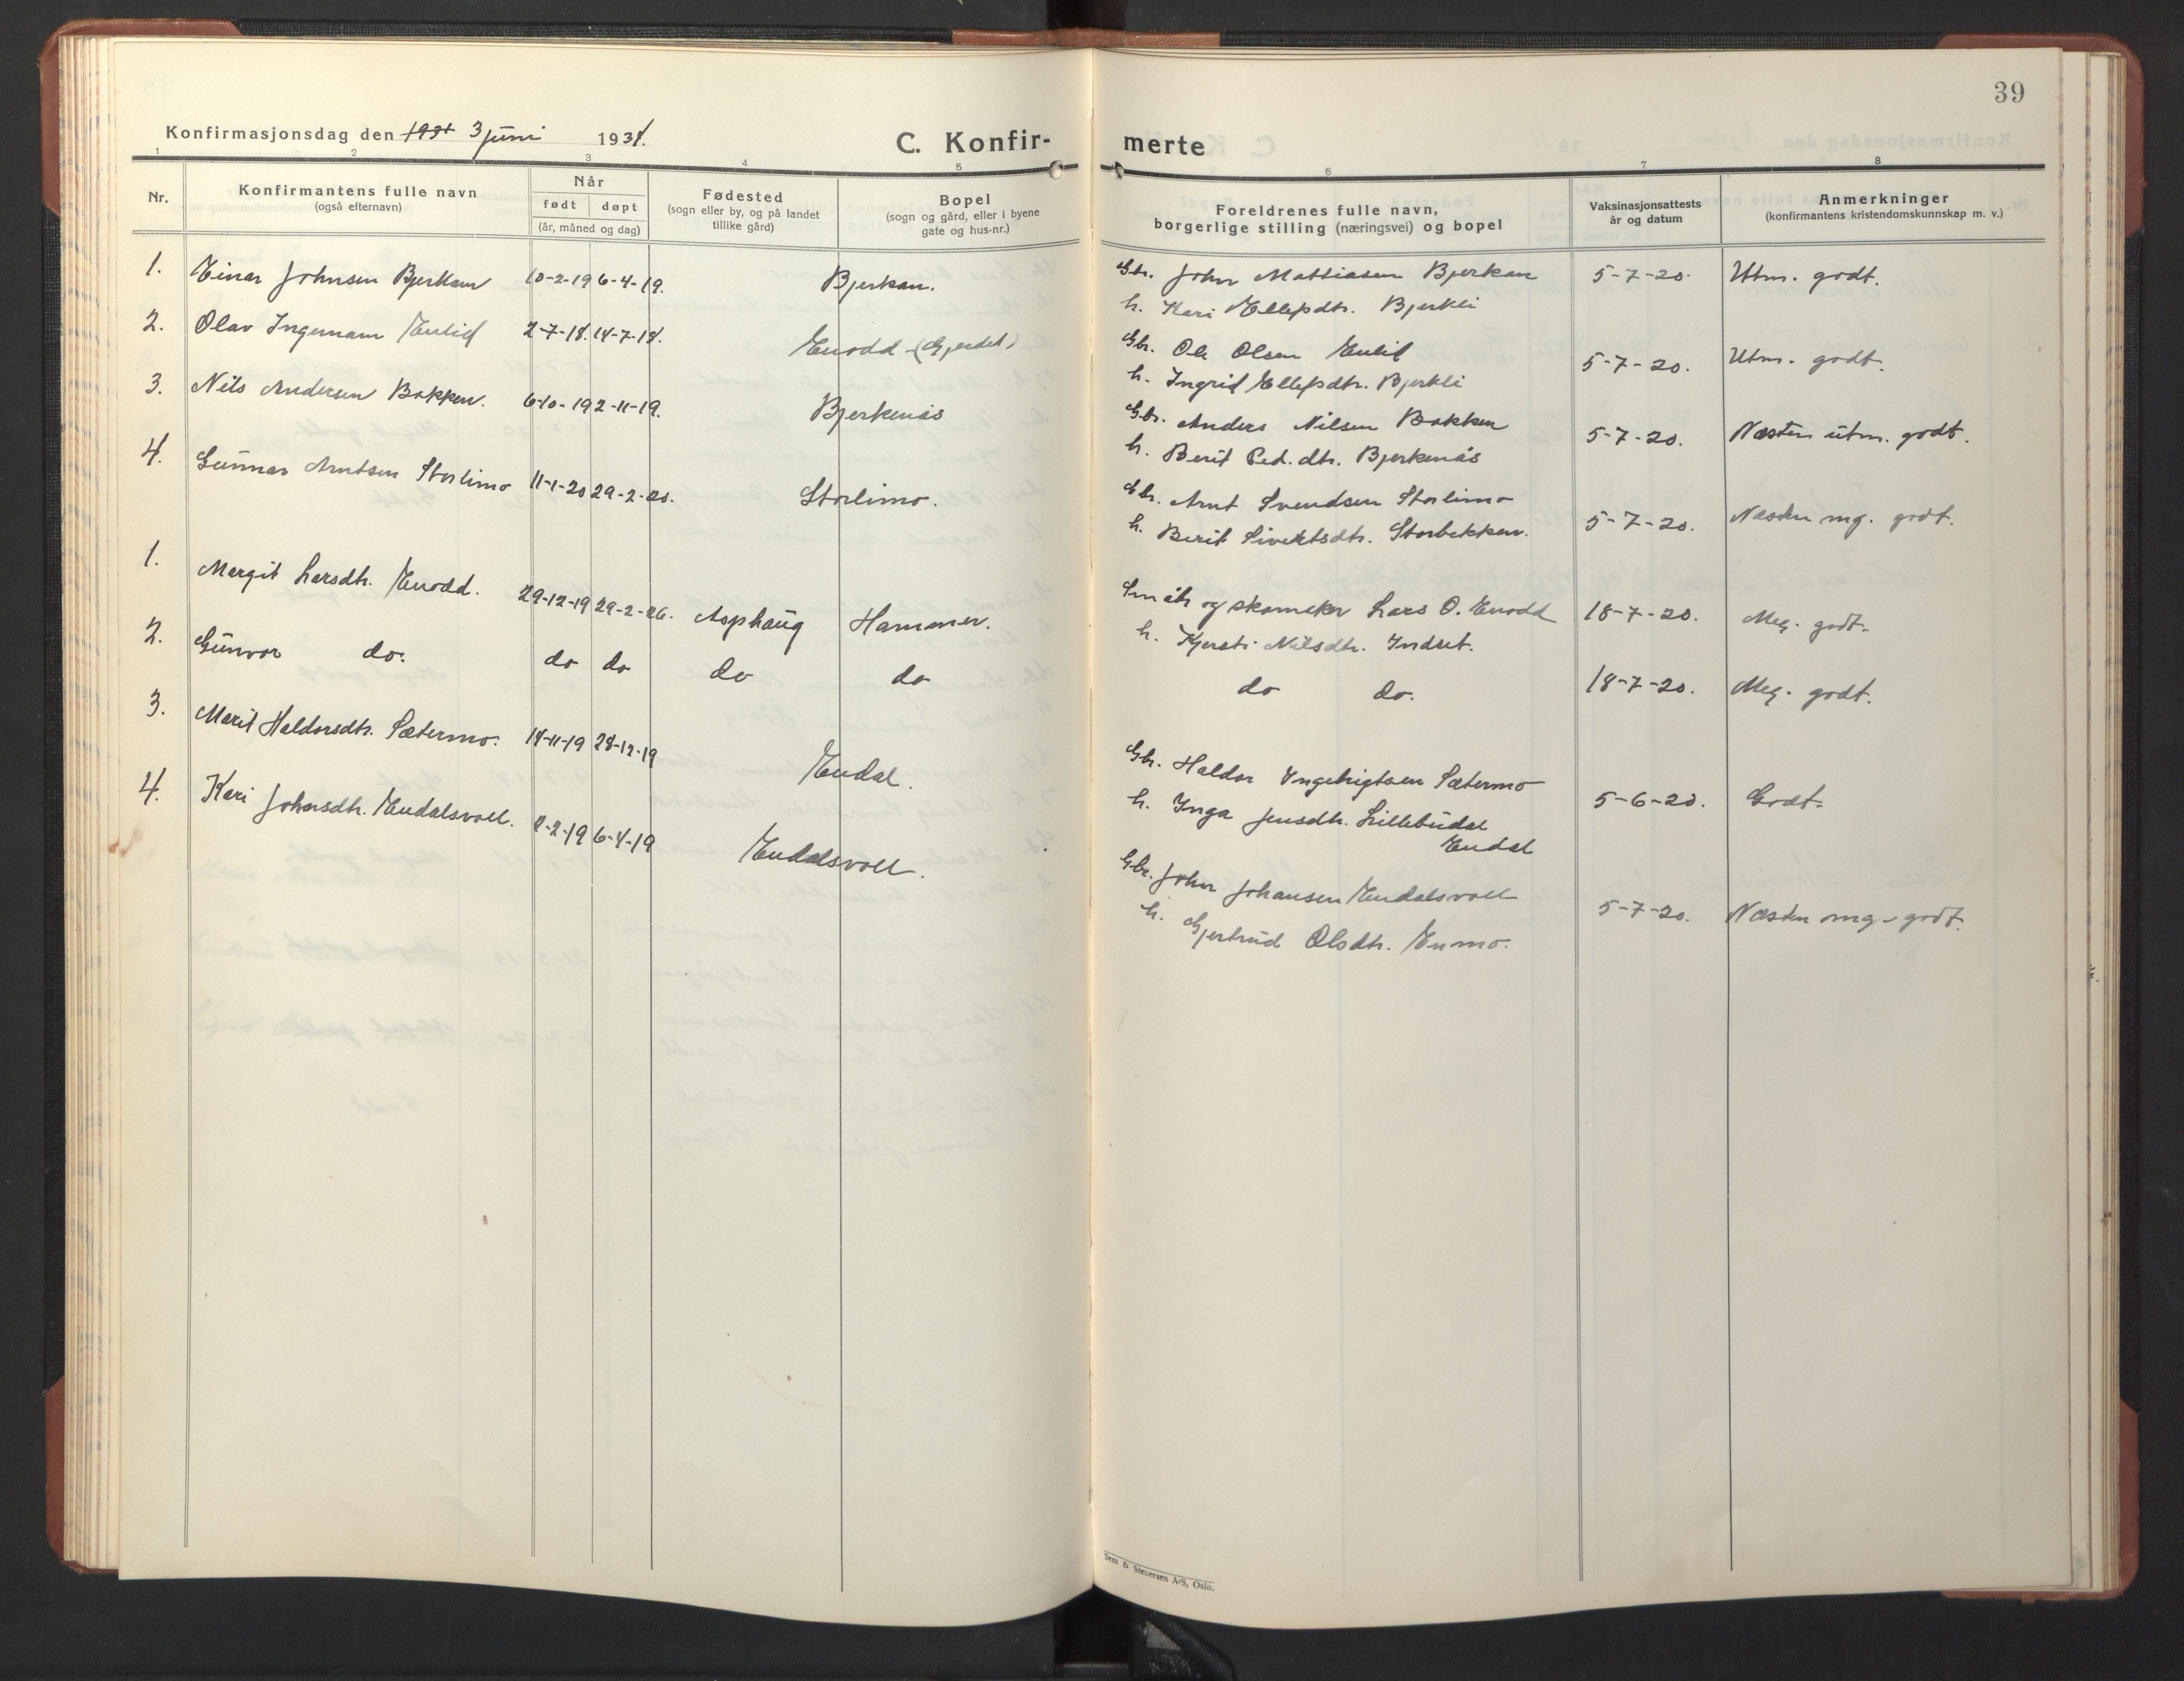 39
Konfirmasjonsdag den 1931 3 juni 1934.
C. Konfir-
merte
1 2 3 4 5 6 7 8
Nr.
Konfirmantens fulle navn
(også efternavn)
Når
født døpt
(år, måned og dag)
Fødested
(sogn eller by, og på landet
tillike gård)
Bopel
(sogn og gård, eller i byene
gate og hus-nr.)
Foreldrenes fulle navn,
borgerlige stilling (næringsvei) og bopel
Vaksinasjonsattests
år og datum
Anmerkninger
(konfirmantens kristendomskunnskap m. v.)
1. Einar Johnsen Bjerkan 10-2-19 6-4-19. Bjerkan. Gbr. John Mattiasen Bjerkan 5-7-20. Utm. godt.
h. Kari Ellefsdtr. Bjerkli
2. Olav Ingemann Enlid 2-7-18. 14-7-18. Enodd (Gjerdet) Gbr. Ole Olsen Enlid 5-7-20. Utm. godt.
h. Ingrid Ellefsdtr. Bjerkli
3. Nils Andersen Bakken. 6-10-19 2-11-19. Bjerkenås Gbr. Anders Nilsen Bakken 5-7-20. Næsten utm. godt.
h. Berit Ped.dtr. Bjerkenås
4. Gunnar Arntsen Storlimo 11-1-20 29-2-20. Storlimo. Gbr. Arnt Svendsen Storlimo 5-7-20. Næsten mg. godt.
h. Berit Sivertsdtr. Storbekken.
1. Margit Larsdtr. Enodd. 29-12-19 29-2-20. Asphaug Hammer. Småbr og skomaker Lars O. Enodd 18-7-20. Meg. godt.
h. Kjersti Nilsdtr. Indset.
2. Gunvor do. do do do do do do. 18-7-20. Meg. godt.
3. Marit Haldorsdtr. Sætermo. 14-11-19 28-12-19 Endal. Gbr. Haldor Ingebrigtsen Sætermo 5-6-20. Godt.
h. Inga Jensdtr. Lillebudal
Endal
4. Kari Johnsdtr. Endalsvoll. 2-2-19 6-4-19 Endalsvoll. Gbr. John Johansen Endalsvoll 5-7-20. Næsten mg. godt.
h. Gjertrud Olsdtr. Enmo.
Sem & Stenersen A/S, Oslo.